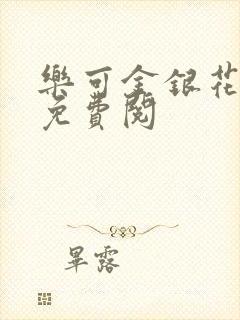 樂可金銀花
免費閱
畢露